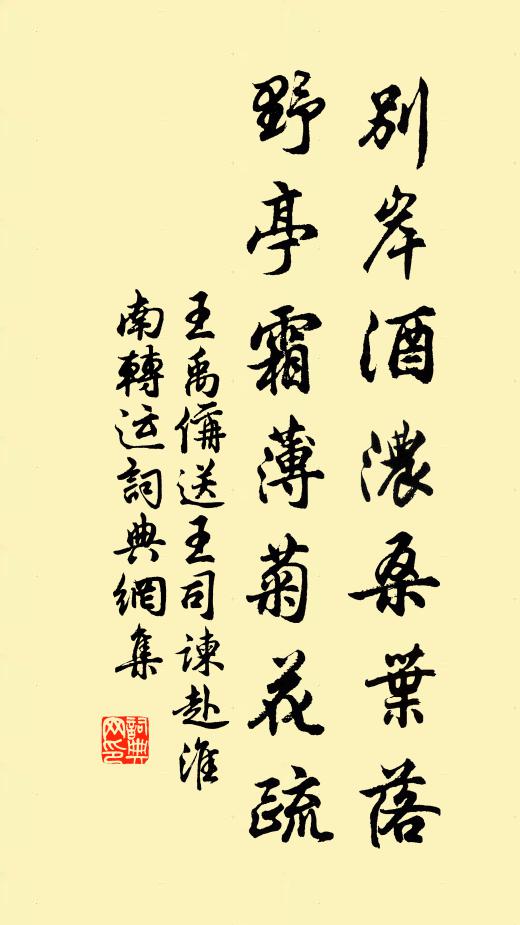 別岸酒濃桑葉落
野亭霜薄菊花疏
王禹偁送王司諫赴淮
南轉运詞典網集
詞典
网印